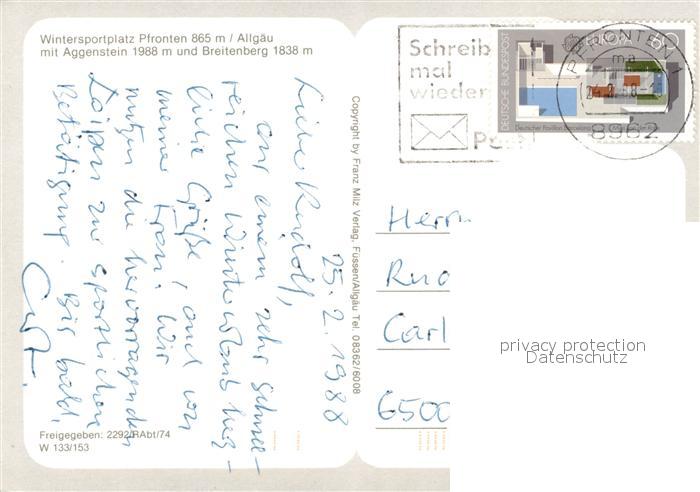 Wintersportplatz Pfronten 865 m / Allgäu
mit Aggenstein 1988 m und Breitenberg 1838 m
25.2.1988
Liebe Rudolf,
aus einem sehr schnee-
reichen Winterurlaub herz-
liche Grüße, auch von
meiner Frau. Wir
nutzen die hervorragenden
Loipen zu sportlicher
Betätigung. Bis bald,
Freigegeben: 2292/RAbt/74
W 133/153
Copyright by Franz Milz Verlag, Füssen/Allgäu Tel. 08362/6008
Schreib
mal
wieder
Post
DEUTSCHE BUNDESPOST
EUROPA 60
Deutscher Pavillon Barcelona
PFRONTEN 1
ma
8962
Herrn
Rud
Carl
6500
privacy protection
Datenschutz